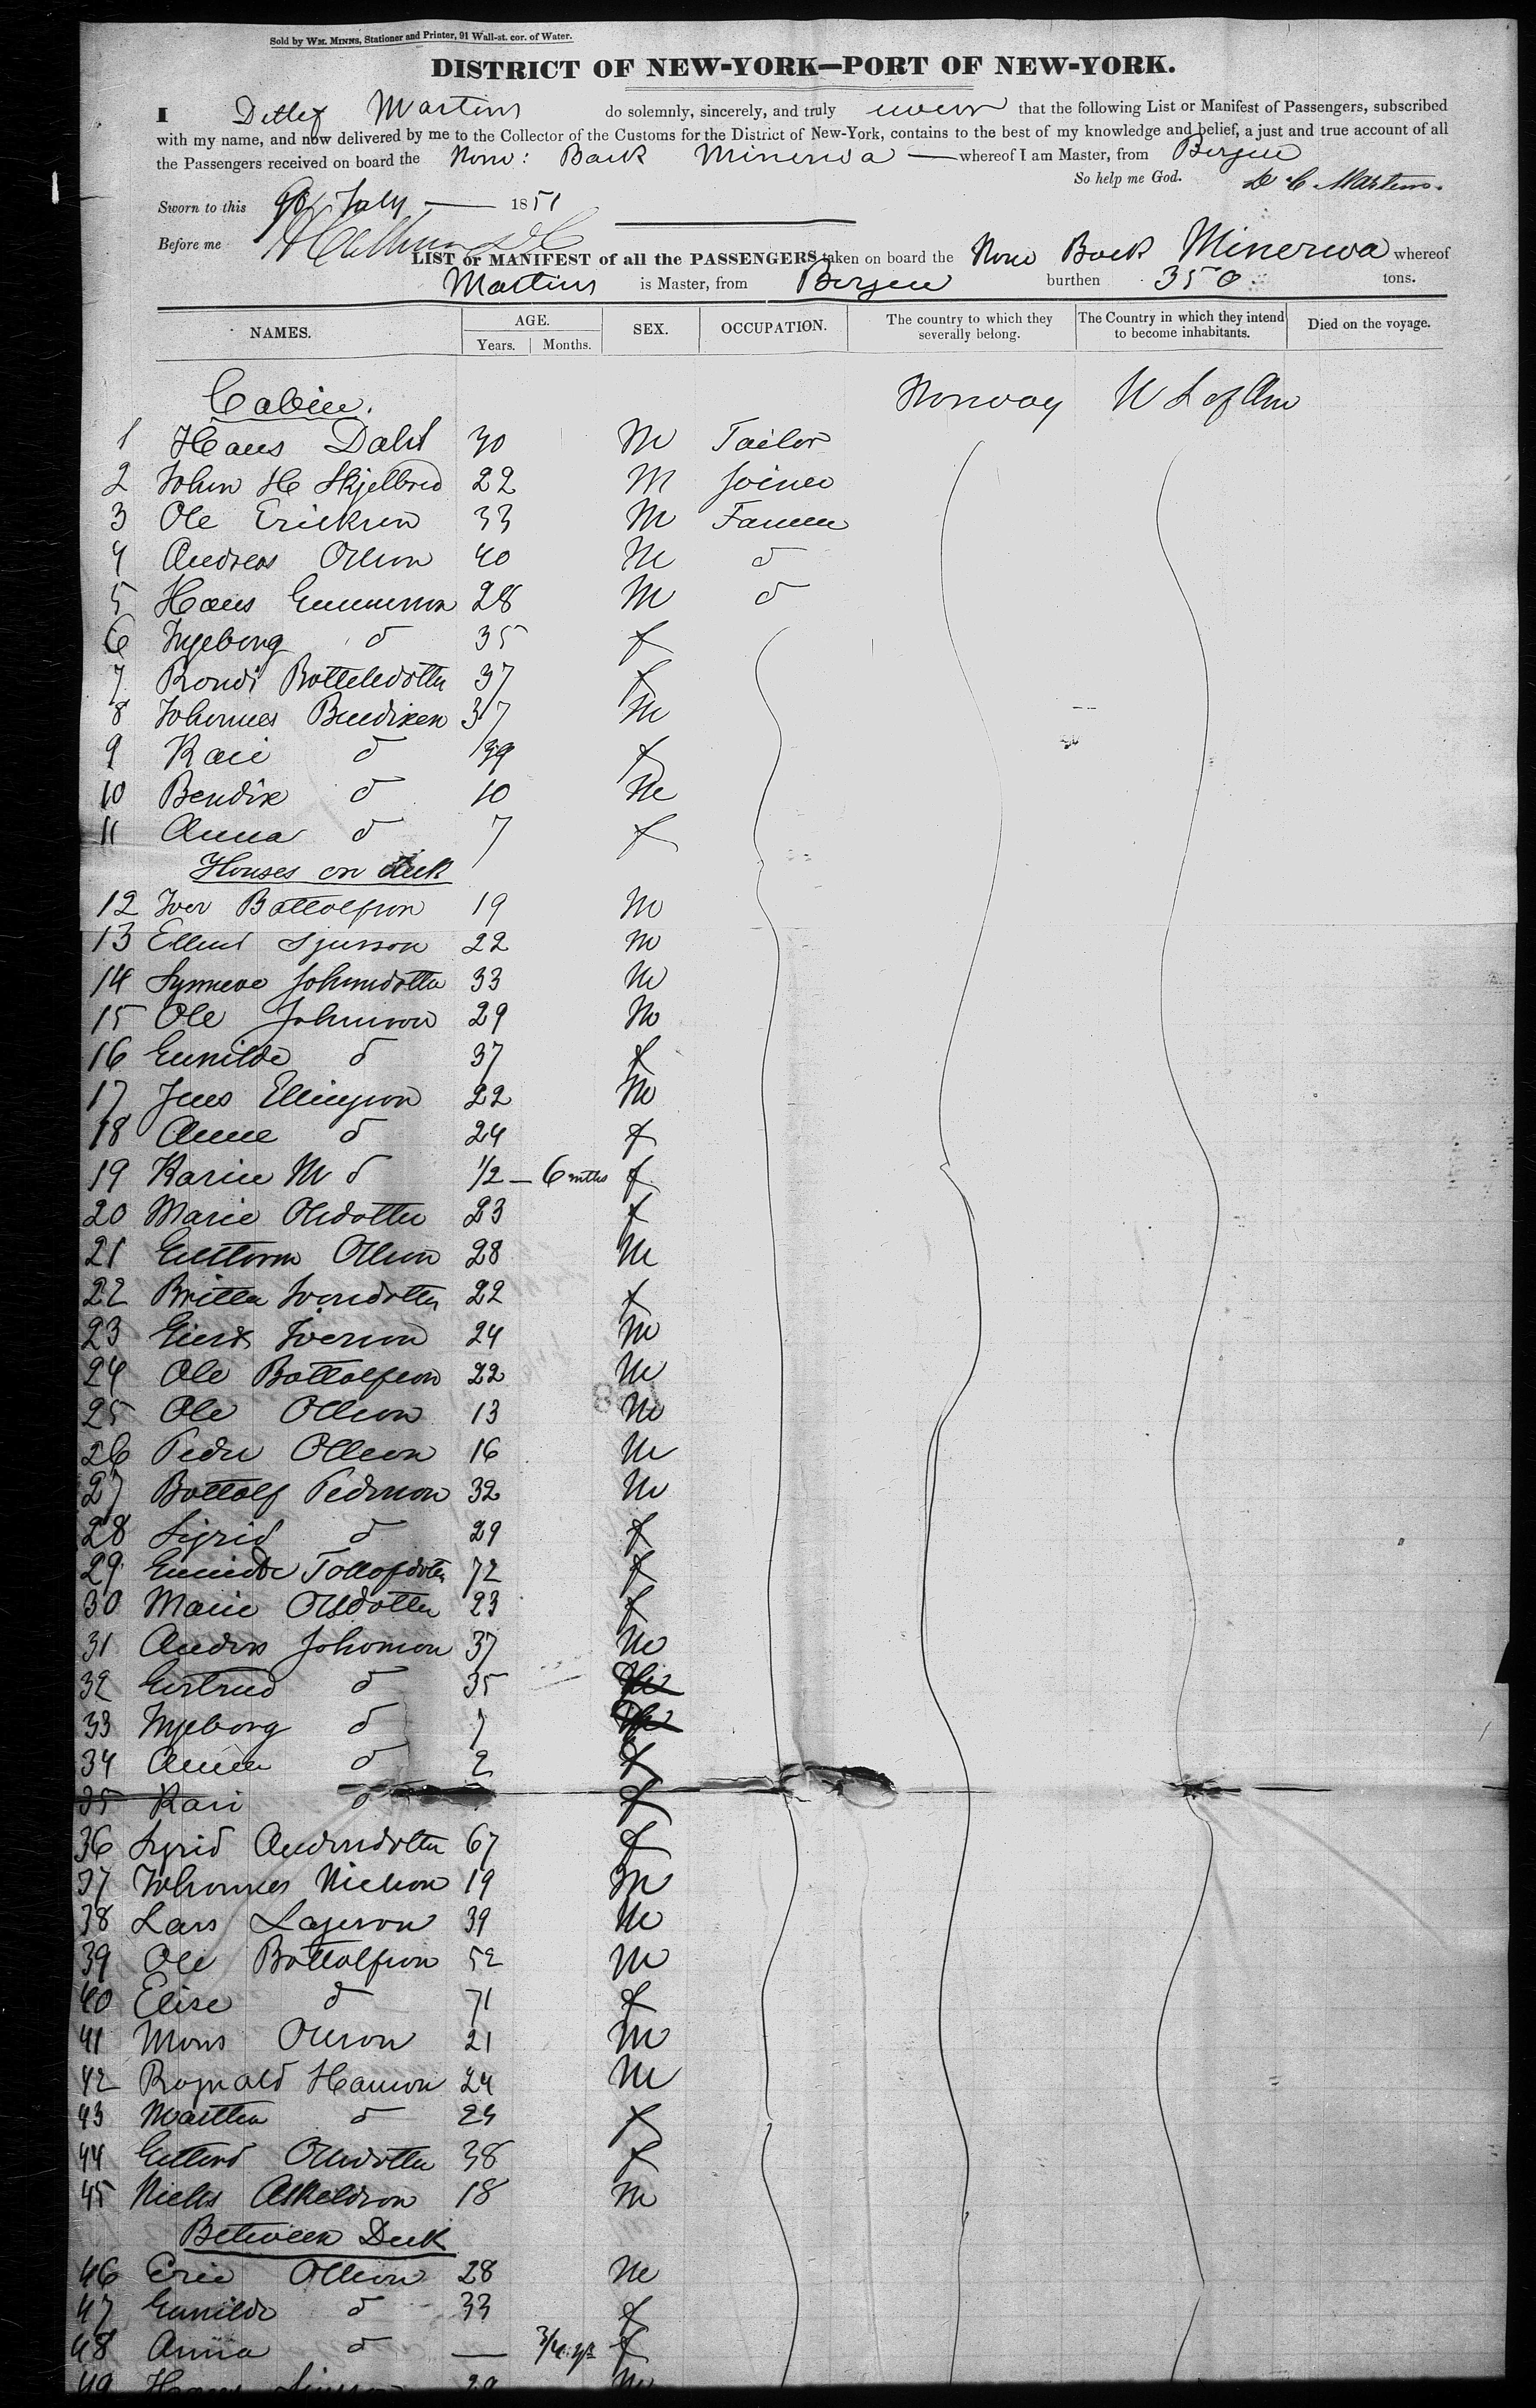 Sold by WM. MINNS, Stationer and Printer, 91 Wall-st. cor. of Water.
DISTRICT OF NEW-YORK—PORT OF NEW-YORK.
I Detlef Martins do solemnly, sincerely, and truly swear that the following List or Manifest of Passengers, subscribed
with my name, and now delivered by me to the Collector of the Customs for the District of New-York, contains to the best of my knowledge and belief, a just and true account of all
the Passengers received on board the Norw: Bark Minerwa — whereof I am Master, from Bergen
So help me God. D C Martens.
Sworn to this July — 1851
Before me
LIST or MANIFEST of all the PASSENGERS taken on board the Norw Bark Minerwa whereof
Martins is Master, from Bergen burthen 350 tons.
NAMES. AGE. Years. Months. SEX. OCCUPATION. The country to which they severally belong. The Country in which they intend to become inhabitants. Died on the voyage.
Cabin. Norway U S of Am
1 Hans Dahl 30 M Tailor
2 John H Skjelbred 22 M Joiner
3 Ole Ericksen 33 M Farmer
4 Andreas Olson 40 M d
5 Hans Gunnerson 28 M d
6 Ingeborg d 35 f
7 Rondi Bottelsdotter 37 f
8 Johannes Bendixen 37 M
9 Kari d 39 f
10 Bendix d 10 M
11 Anna d 7 f
Houses on deck
12 Iver Battolfson 19 M
13 Sjurson 22 M
14 Synneve Johnsdotter 33 M
15 Ole Johnson 29 M
16 Gunilde d 37 f
17 Jens Ellingson 22 M
18 Anne d 24 f
19 Karin M d 1/2 — 6 mths f
20 Marie Olsdotter 23 f
21 Guttorm Olson 28 M
22 Britta Iversdotter 22 f
23 Iverson 24 M
24 Ole Bottolfson 22 M
25 Ole Olson 13 M
26 Peder Olson 16 M
27 Bottolf Pederson 32 M
28 Sigrid d 29 f
29 Gunilde Tollofsdotter 72 f
30 Marie Olsdotter 23 f
31 Anders Johanson 37 M
32 Gertrud d 35
33 Ingeborg d 7
34 Anna d 2 f
35 Kari d f
36 Sigrid Andersdotter 67 f
37 Johannes Nielson 19 M
38 Lars 39 M
39 Ole Bottolfson 52 M
40 Elise d 71 f
41 Mons Olson 21 M
42 Rognald Hanson 24 M
43 Martha d 25 f
44 Olsdotter 38 f
45 Niels Askeldson 18 M
Between Deck
46 Eric Olson 28 M
47 Gunilde d 33 f
48 Anna d — 3/4 yr f
49 Hans 29 M